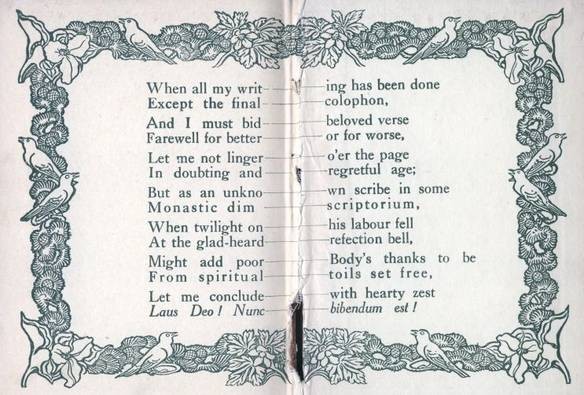 When all my writ ing has been done
Except the final colophon,
And I must bid beloved verse
Farewell for better or for worse,
Let me not linger o'er the page
In doubting and regretful age;
But as an unkno wn scribe in some
Monastic dim scriptorium,
When twilight on his labour fell
At the glad-heard refection bell,
Might add poor Body's thanks to be
From spiritual toils set free,
Let me conclude with hearty zest
Laus Deo! Nunc bibendum est!